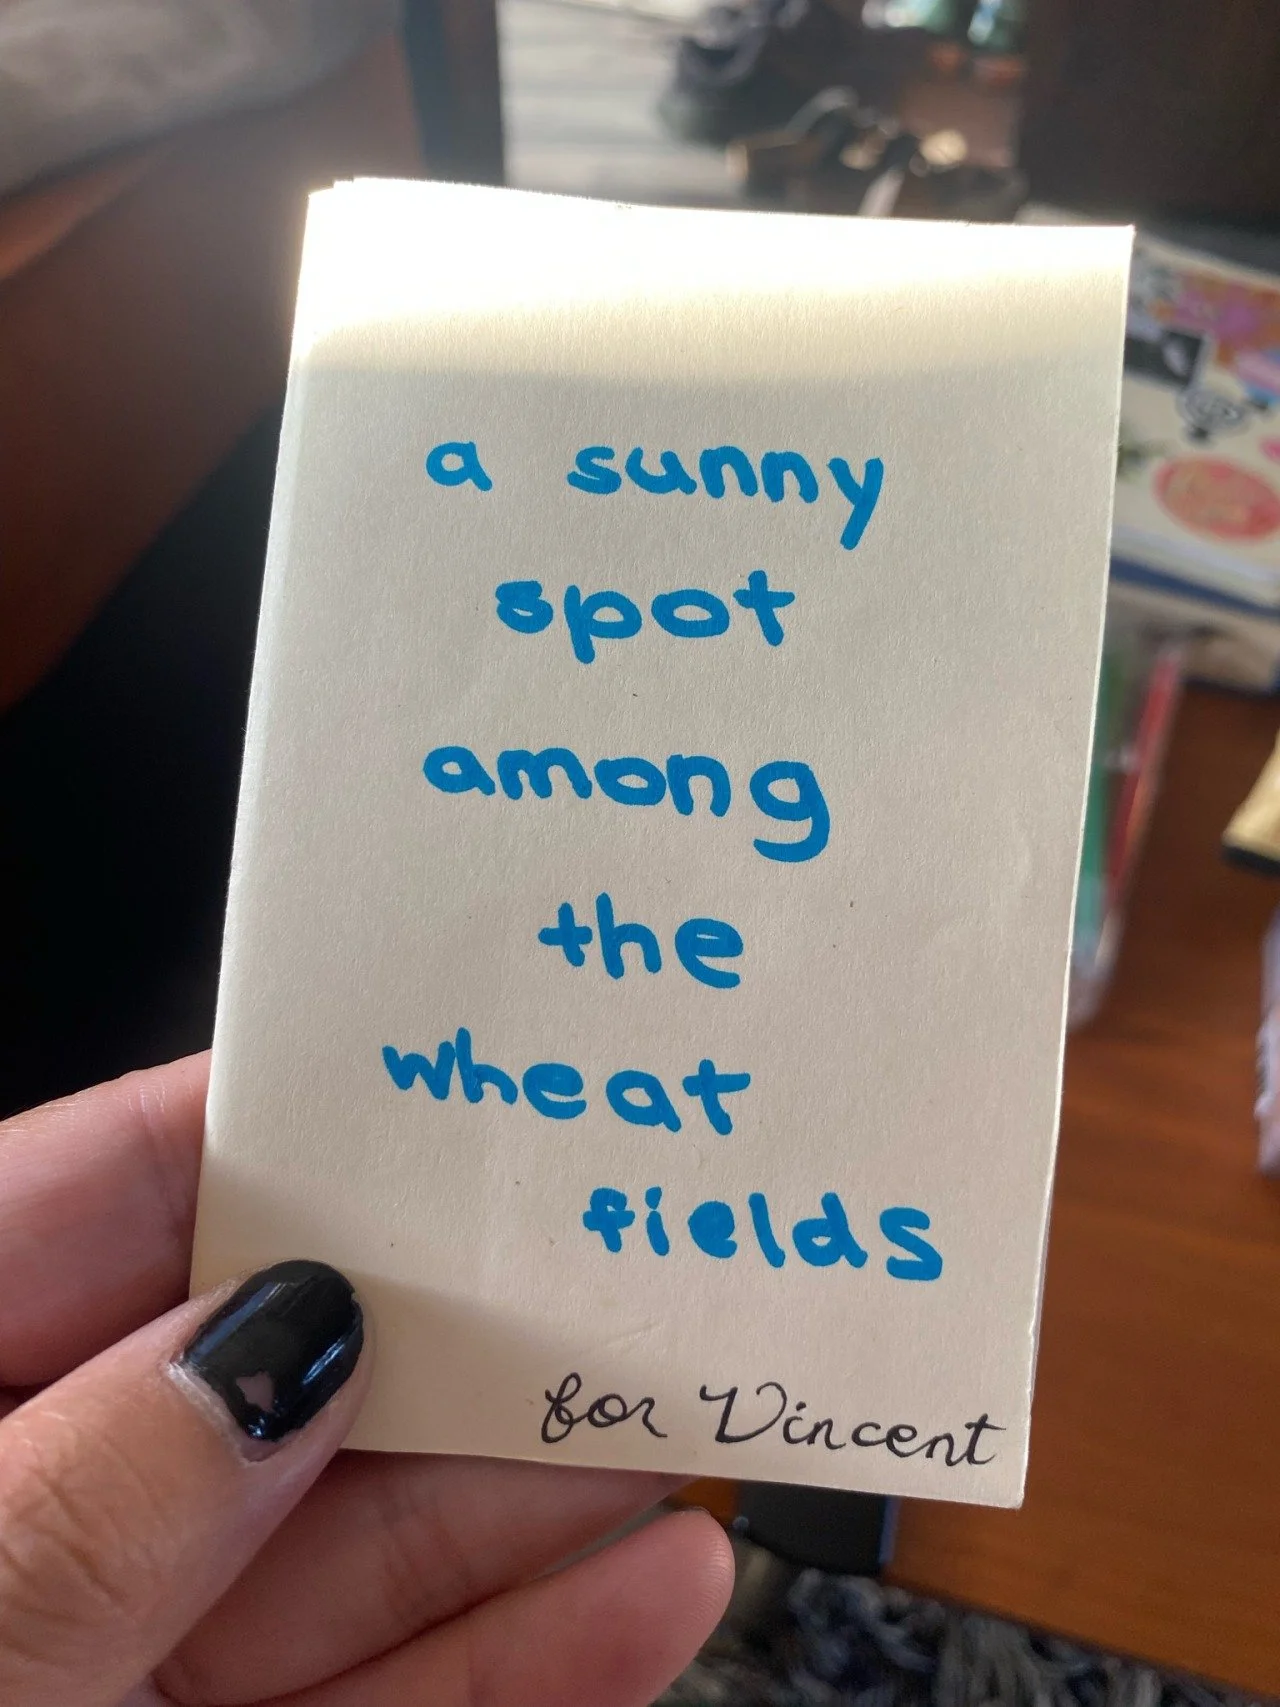 a sunny
spot
among
the
wheat
fields
for Vincent